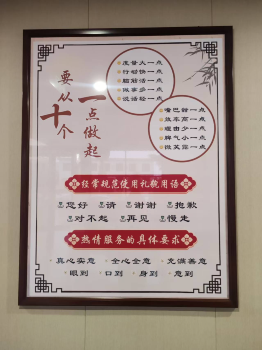 要从十个一点做起
度量大一点
行动快一点
脑筋活一点
做事多一点
说话轻一点
嘴巴甜一点
效率高一点
理由少一点
脾气小一点
微笑露一点
经常规范使用礼貌用语
您好 请 谢谢 抱歉
对不起 再见 慢走
热情服务的具体要求
真心实意 全心全意 充满善意
眼到 口到 身到 意到